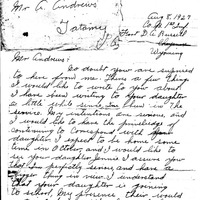 Mr A. Andrews
Tatamy
Pa.
Aug 8, 1927
Co. 1st Inf.
Fort D. A. Russell
Cheyenne
Wyoming
Mr. Andrews:
No doubt you are suprised
to hear from me. There a few lines
I would like to write to you about.
I have been writing to your daughter
a little while since I've been in the
service. My intentions are sincere, and
I would like to have the priviledge
continuing to Correspond with your
daughter. I expect to be home some
time in October and I would like to
see your daughter, Annie. I assure you
that I'm perfectly sincere and have a
bigger that in view. I understand
that your daughter is going
to school. My presence, their would